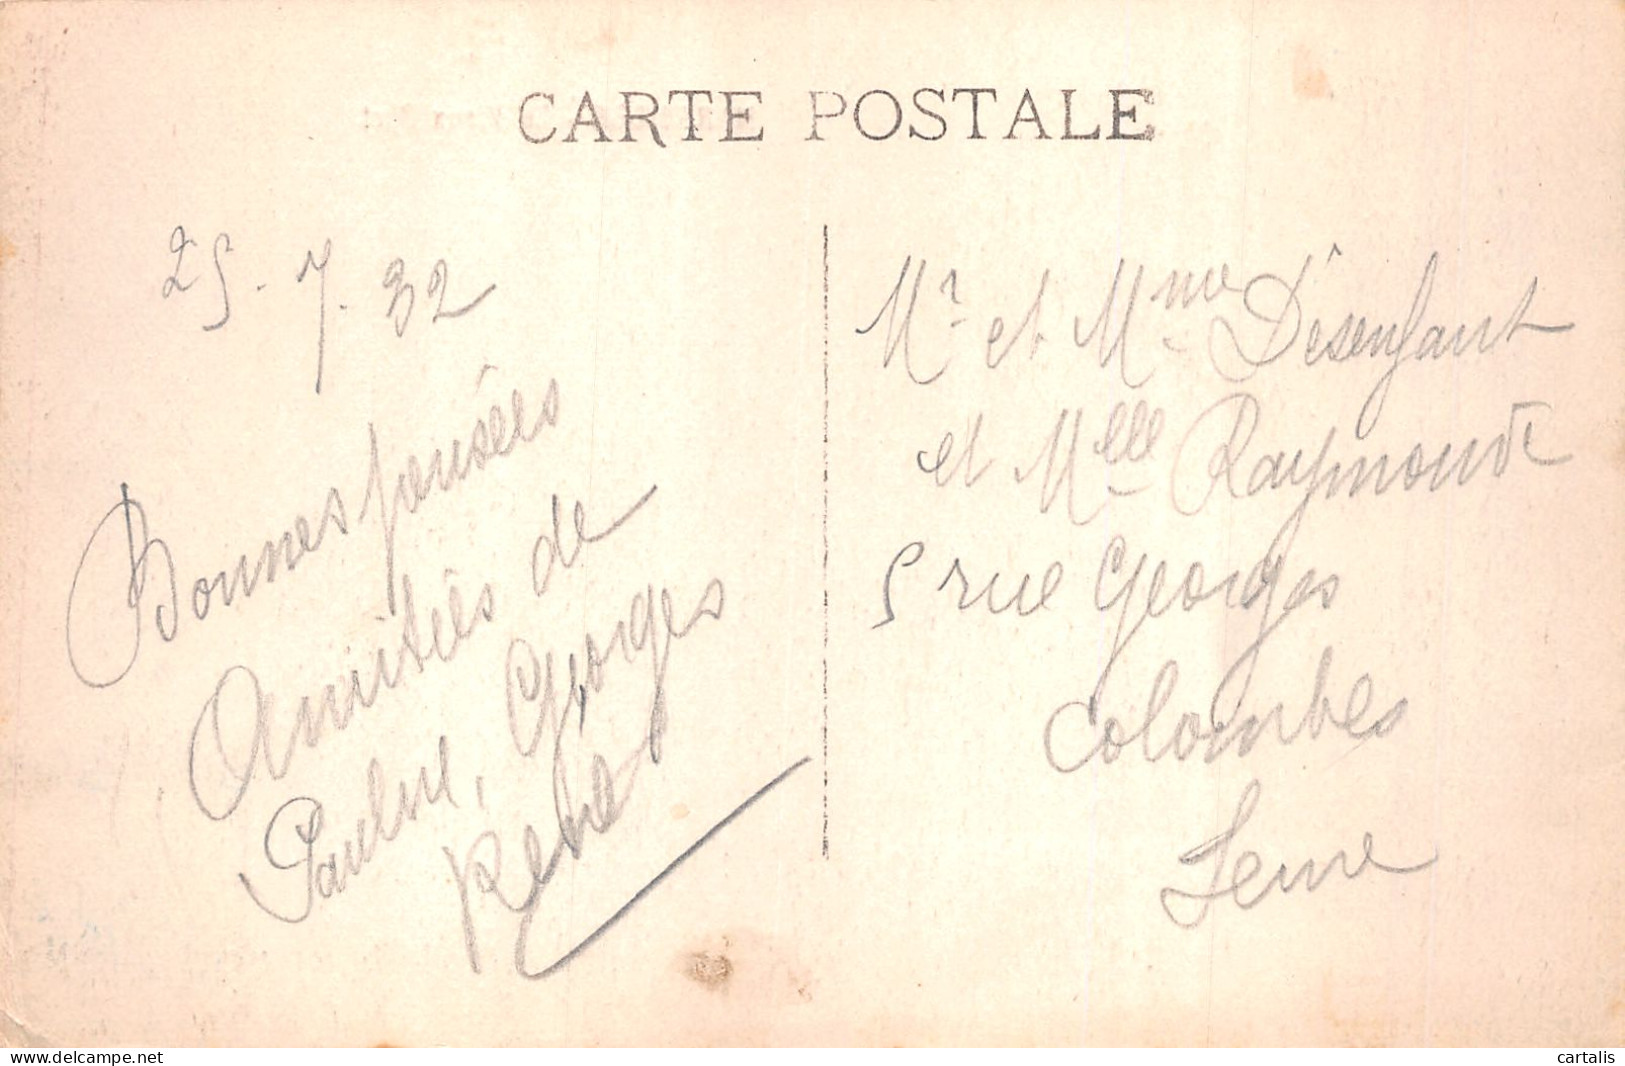 CARTE POSTALE
25.7.32
Bonnes pensées
Amitiés de
Pauline, Georges
René
Mr et Mme Désenfant
et Melle Raymonde
5 rue Georges
Colombes
Seine
www.delcampe.net
cartalis